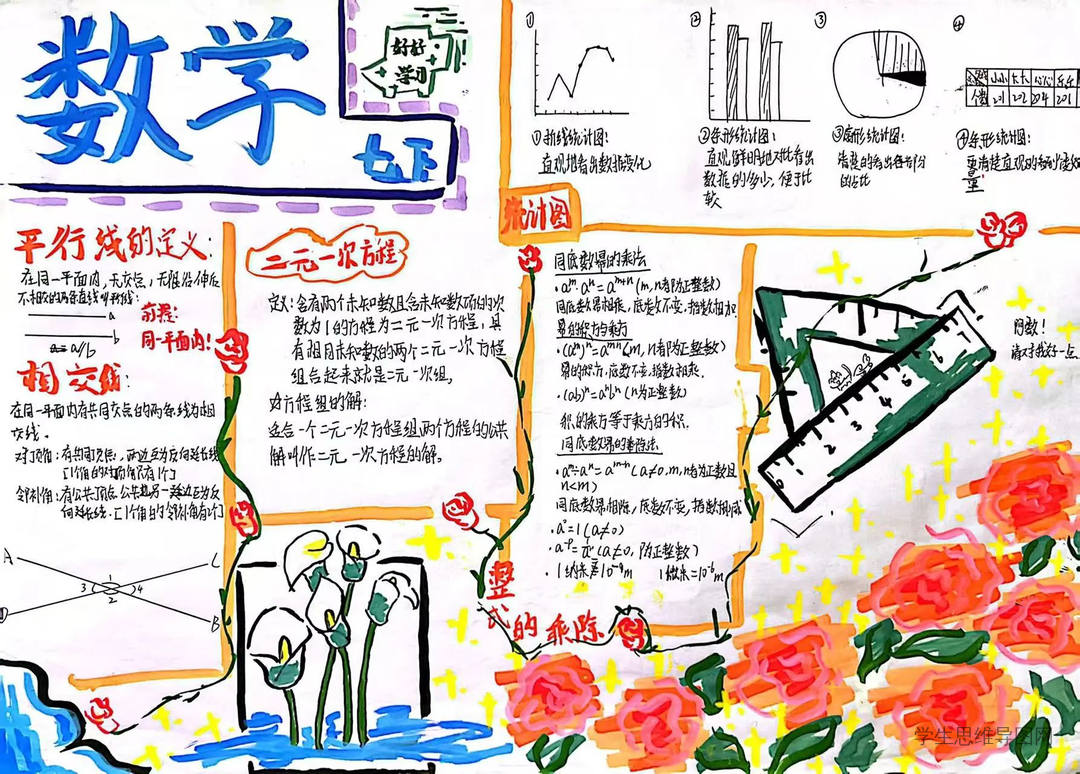 数学
好好
学习
七下
①
②
③
④
个数 201 202 204 201
①折线统计图：
直观地看出数据变化
②条形统计图：
直观鲜明地对比看出
数据的多少，便于比
较
③扇形统计图：
清楚的看出各部分
的占比
④条形统计图：
统计图
平行线的定义：
在同一平面内，无交点，无限延伸后
不相交的两条直线叫平行线：
a
b
a//b
前提：
同一平面内！
相交线：
在同一平面内有共同交点的两条线为相
交线．
对顶角：有共同顶点，两边互为反向延长线
[1个角的对顶角只有1个]
邻补角：有公共顶点，公共边，另一边互为反
向延长线．[1个角的邻补角有2个]
A
C
1
3
4
2
D
B
二元一次方程
定义：含有两个未知数且含未知数项的次
数为1的方程为二元一次方程，具
有相同未知数的两个二元一次方程
组合起来就是二元一次组。
方程组的解：
适合一个二元一次方程组两个方程的公共
解叫作二元一次方程的解。
同底数幂的乘法
·aᵐ·aⁿ=aᵐ⁺ⁿ(m,n都为正整数)
同底数幂相乘，底数不变，指数相加．
幂的乘方与乘方
·(aᵐ)ⁿ=aᵐⁿ(m,n都为正整数)
幂的乘方，底数不变，指数相乘．
·(ab)ⁿ=aⁿbⁿ(n为正整数)
积的乘方等于乘方的积．
同底数幂的乘除法
·aᵐ÷aⁿ=aᵐ⁻ⁿ(a≠0,m,n都为正数且
n<m)
同底数幂相除，底数不变，指数相减
·a⁰=1(a≠0)
(a≠0，p为正整数)
·1纳米=10⁻⁹m 1微米=10⁻⁶m
整式的乘除
0
1
2
3
4
5
6
7
阿数！
请对我好一点
学生思维导图网